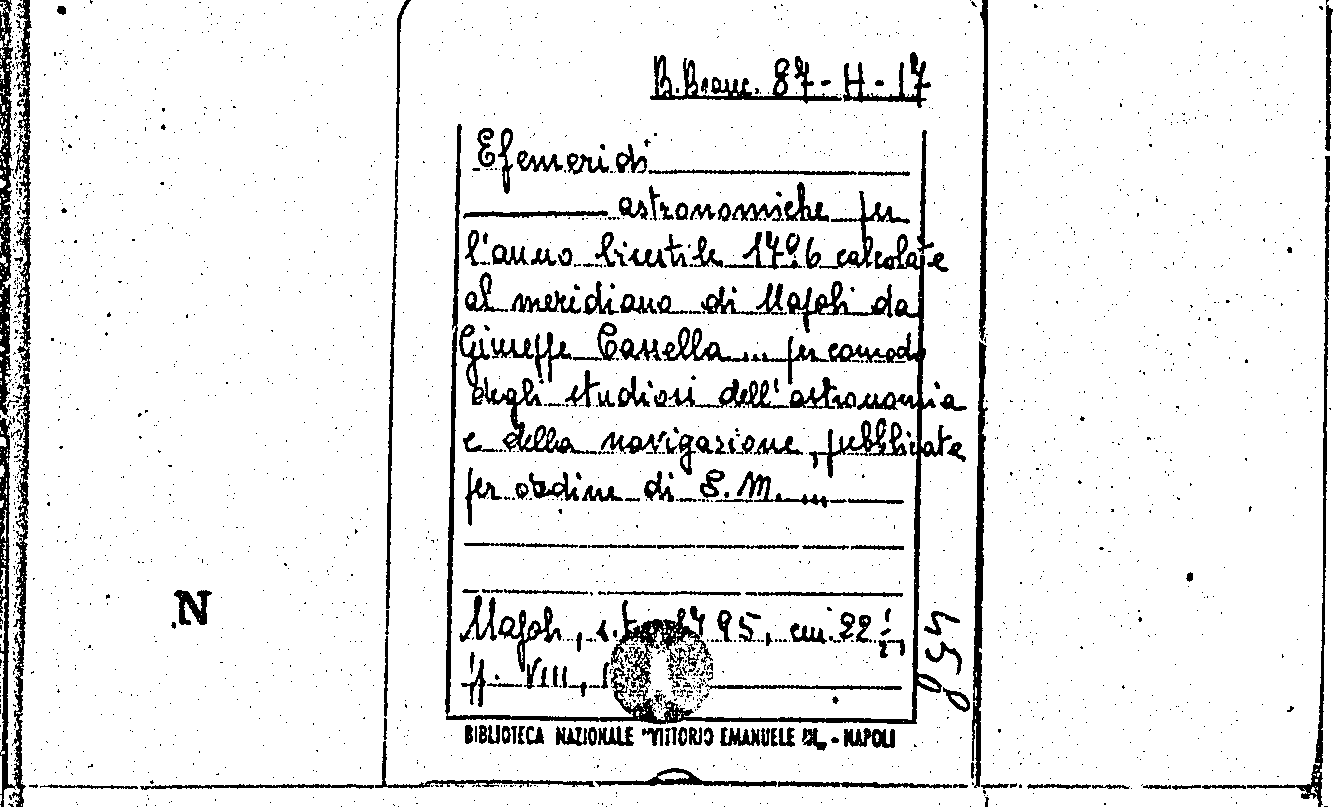 B. Branc. 87-H-17
Efemeridi
astronomiche per
l'anno bisestile 1796 calcolate
al meridiano di Napoli da
Giuseppe Cassella ... per comodo
degli studiosi dell'astronomia
e della navigazione, pubblicate
per ordine di S. M. ...
Napoli, 1795, cm. 22
pp. VIII,
BIBLIOTECA NAZIONALE "VITTORIO EMANUELE III" - NAPOLI
N